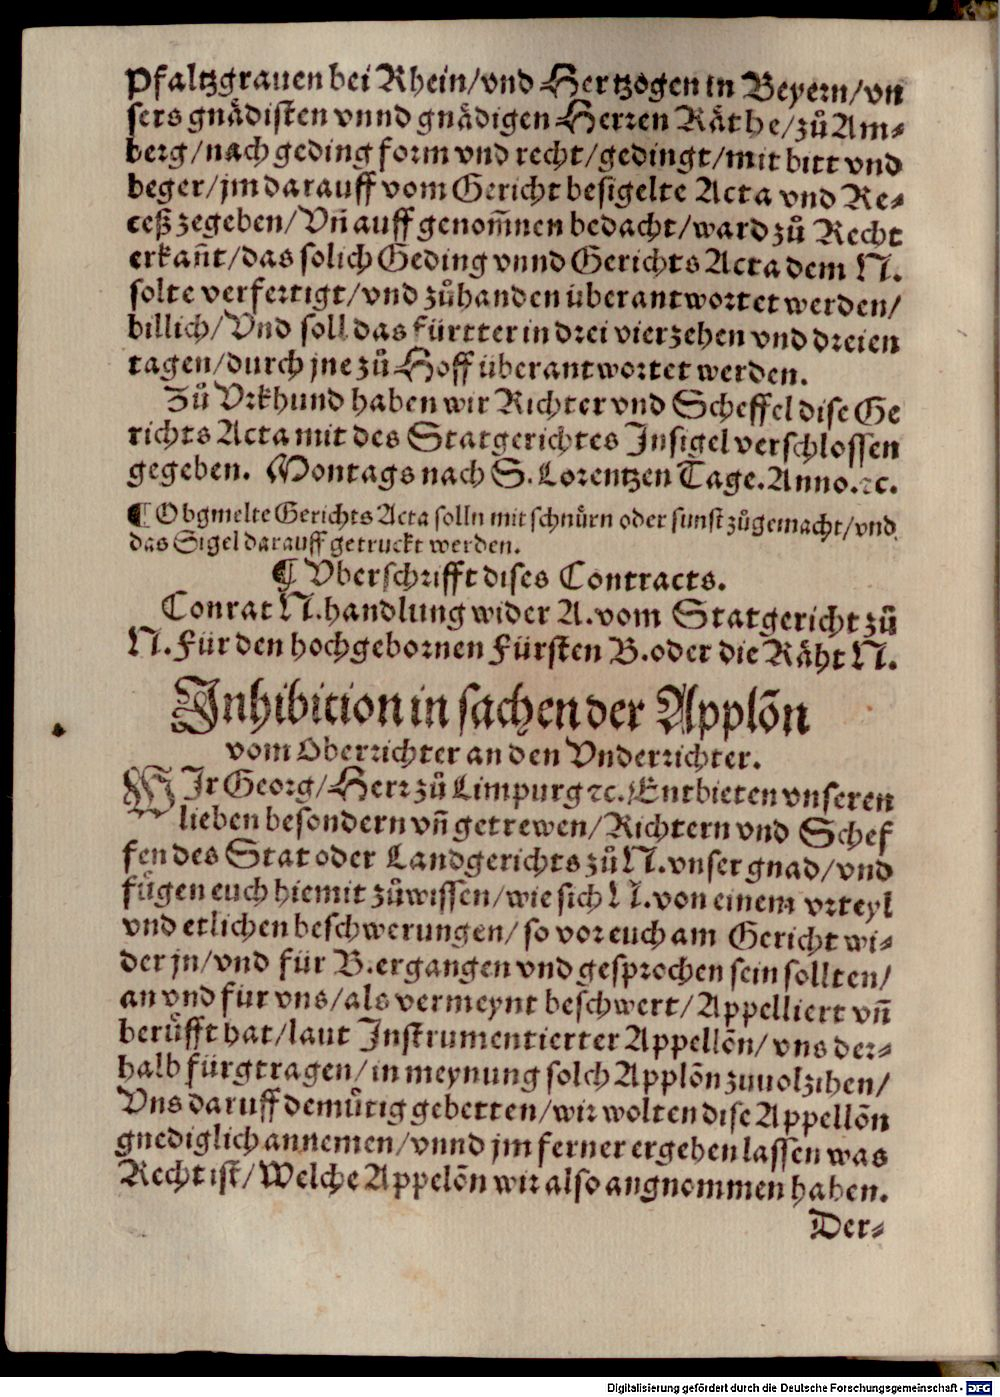 Pfaltzgrauen bei Rhein/vnd Hertzogen in Beyern/vn
sers gnädisten vnnd gnädigen Herren Räthe/zů Am-
berg/nach geding form vnd recht/gedingt/mit bitt vnd
beger/jm darauff vom Gericht besigelte Acta vnd Re-
ceß zegeben/Vñ auff genom̃nen bedacht/ward zů Recht
erkañt/das solich Geding vnnd Gerichts Acta dem N.
solte verfertigt/vnd zůhanden überantwortet werden/
billich/Vnd soll das fürtter in drei vierzehen vnd dreien
tagen/durch jne zů Hoff überantwortet werden.
Zů Vrkhund haben wir Richter vnd Scheffel dise Ge
richts Acta mit des Statgerichtes Insigel verschlossen
gegeben. Montags nach S. Lorentzen Tage. Anno. ꝛc.
¶ Obgmelte Gerichts Acta solln mit schnůrn oder sunst zůgemacht/vnd
das Sigel darauff getruckt werden.
¶ Vberschrifft dises Contracts.
Conrat N. handlung wider A. vom Statgericht zů
N. Für den hochgebornen Fürsten B. oder die Räht N.
Inhibition in sachen der Applõn
vom Oberrichter an den Vnderrichter.
WIr Georg/Herr zů Limpurg ꝛc. Entbieten vnseren
lieben besondern vñ getrewen/Richtern vnd Schef
fen des Stat oder Landgerichts zů N. vnser gnad/vnd
fůgen euch hiemit zůwissen/wie sich N. von einem vrteyl
vnd etlichen beschwerungen/so vor euch am Gericht wi-
der jn/vnd für B. ergangen vnd gesprochen sein sollten/
an vnd für vns/als vermeynt beschwert/Appelliert vñ
berůfft hat/laut Instrumentierter Appellõn/vns der-
halb fürgtragen/in meynung solch Applõn zuuolzihen/
Vns daruff demůtig gebetten/wir wolten dise Appellõn
gnediglich annemen/vnnd jm ferner ergehen lassen was
Recht ist/Welche Appelõn wir also angnommen haben.
Der-
Digitalisierung gefördert durch die Deutsche Forschungsgemeinschaft - DFG